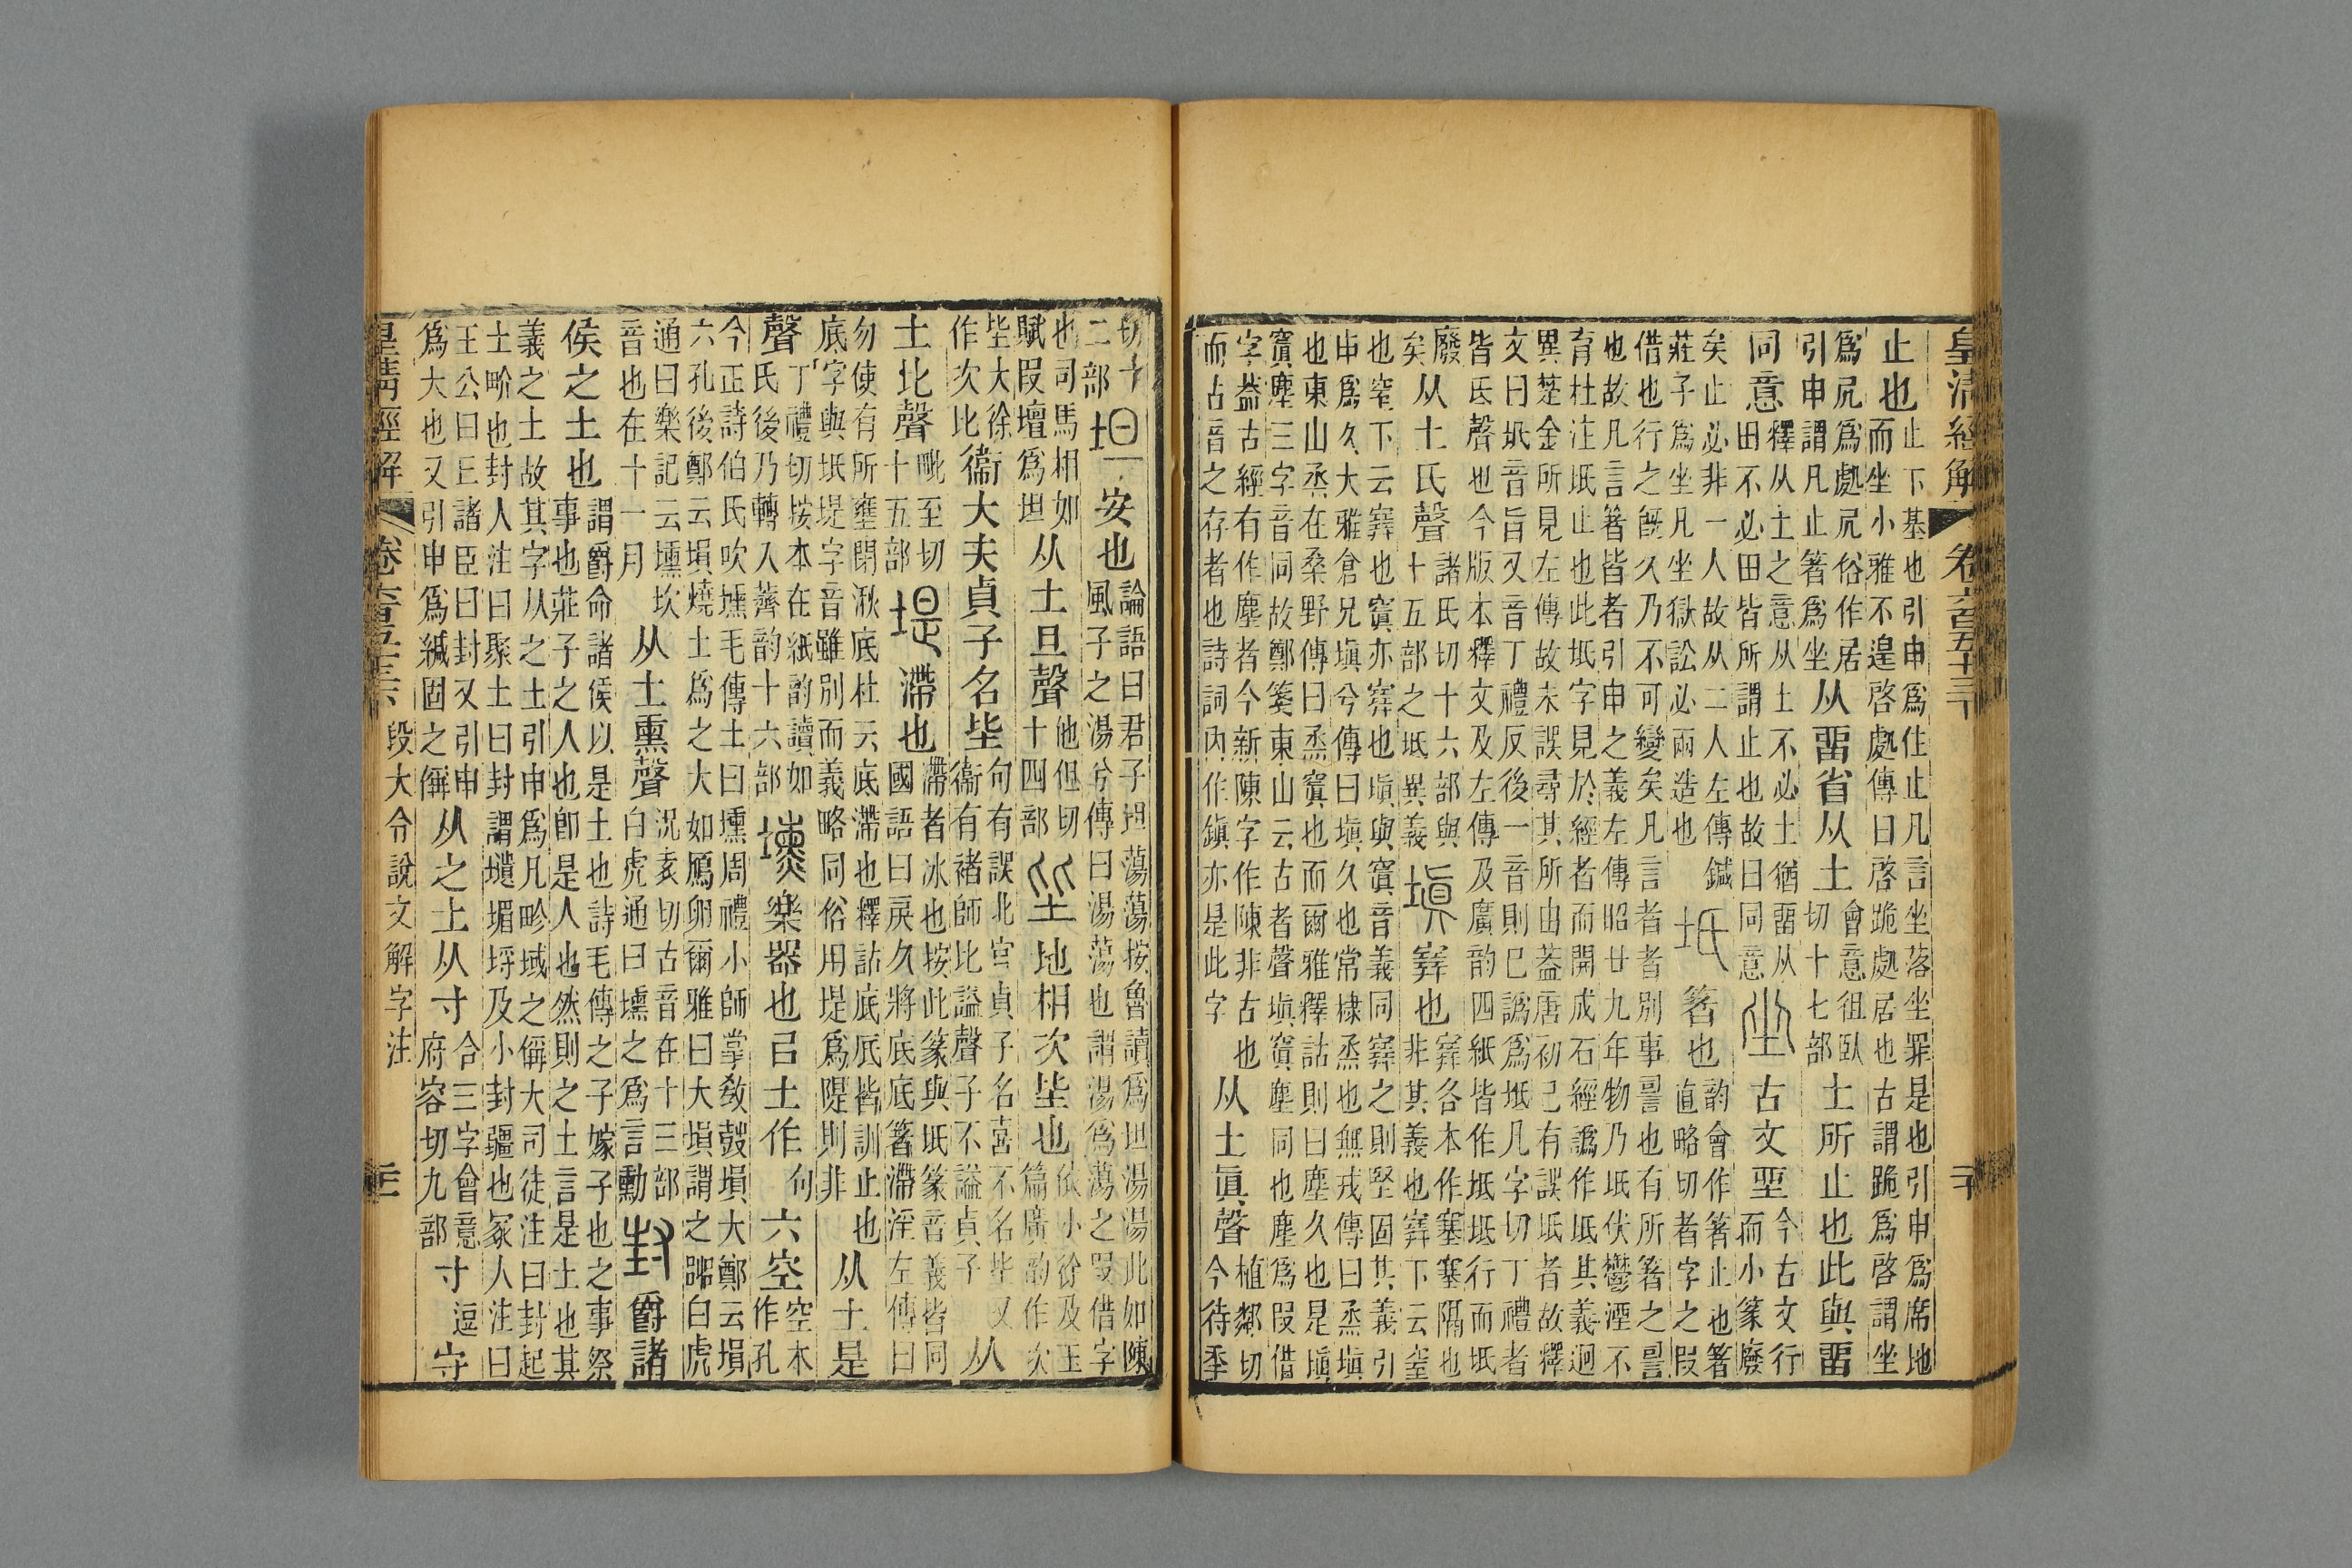 皇淸經解 卷六百五十三下 二十
止也 止下基也引申爲住止凡言坐落坐罪是也引申爲席地
而坐小雅不遑啓處傳曰啓跪處居也古謂跪爲啓謂坐
爲凥爲處凥俗作居
引申謂凡止箸爲坐 从畱省从土 會意徂臥
切十七部 土所止也此與畱
同意 釋从土之意从土不必土猶畱从
田不必田皆所謂止也故曰同意 坐 古文坐 今古文行
而小篆廢
矣止必非一人故从二人左傳鍼
莊子爲坐凡坐獄訟必兩造也 坁 箸也 韵會作箸止也箸
直略切者字之叚
借也行之旣久乃不可變矣凡言者者別事䛐也有所箸之䛐
也故凡言箸皆者引申之義左傳昭廿九年物乃坻伏鬱湮不
育杜注坻止也此坻字見於經者而開成石經譌作坻其義迥
異楚金所見左傳故未誤尋其所由葢唐初已有誤坻者故釋
文曰坻音旨又音丁禮反後一音則已譌爲坻凡字切丁禮者
皆氐聲也今版本釋文及左傳及廣韵四紙皆作坻坻行而坁
廢
矣 从土氏聲 諸氏切十六部與
十五部之坻異義 塡 𡫳也 𡫳各本作塞塞隔也
非其義也𡫳下云窒
也窒下云𡫳也窴亦𡫳也塡與窴音義同𡫳之則堅固其義引
申爲久大雅倉兄塡兮傳曰塡久也常棣烝也無戎傳曰烝塡
也東山烝在桑野傳曰烝窴也而爾雅釋詁則曰塵久也是塡
窴塵三字音同故鄭箋東山云古者聲塡窴塵同也塵爲叚借
字葢古經有作塵者今新陳字作陳非古也
而古音之存者也詩詞內作鎭亦是此字 从土眞聲 植鄰切
今待季
切十
二部 坦 安也 論語曰君子坦蕩蕩按魯讀爲坦湯湯此如陳
風子之湯兮傳曰湯蕩也謂湯爲蕩之叚借字
也司馬相如
賦叚壇爲坦 从土旦聲 他但切
十四部 坒 地相次坒也 依小徐及玉
篇廣韵作次
坒大徐
作次比 衞大夫貞子名坒 句有誤北宮貞子名喜不名坒又
衞有褚師比謚聲子不謚貞子 从
土比聲 毗至切
十五部 堤 滯也 滯者冰也按此篆與坁篆音義皆同
國語曰戾久將底底箸滯淫左傳曰
勿使有所壅閉湫底杜云底滯也釋詁底厎皆訓止也
底字與坁堤字音雖別而義略同俗用堤爲隄則非 从土是
聲 丁禮切按本在紙韵讀如
氏後乃轉入薺韵十六部 壎 樂器也㠯土作 句 六空 空本
作孔
今正詩伯氏吹壎毛傳土曰壎周禮小師掌敎鼗塤大鄭云塤
六孔後鄭云塤燒土爲之大如鴈卵爾雅曰大塤謂之嘂白虎
通曰樂記云壎坎
音也在十一月 从土熏聲 況袁切古音在十三部
白虎通曰壎之爲言勳 封 爵諸
侯之土也 謂爵命諸侯以是土也詩毛傳之子嫁子也之事祭
事也莊子之人也卽是人也然則之土言是土也其
義之土故其字从之土引申爲凡畛域之偁大司徒注曰封起
土畍也封人注曰聚土曰封謂壝堳埒及小封疆也冢人注曰
王公曰丘諸臣曰封又引申
爲大也又引申爲緘固之偁 从之土从寸 合三字會意
府容切九部 寸 逗 守
皇淸經解 卷六百五十三下 段大令說文解字注 二十一